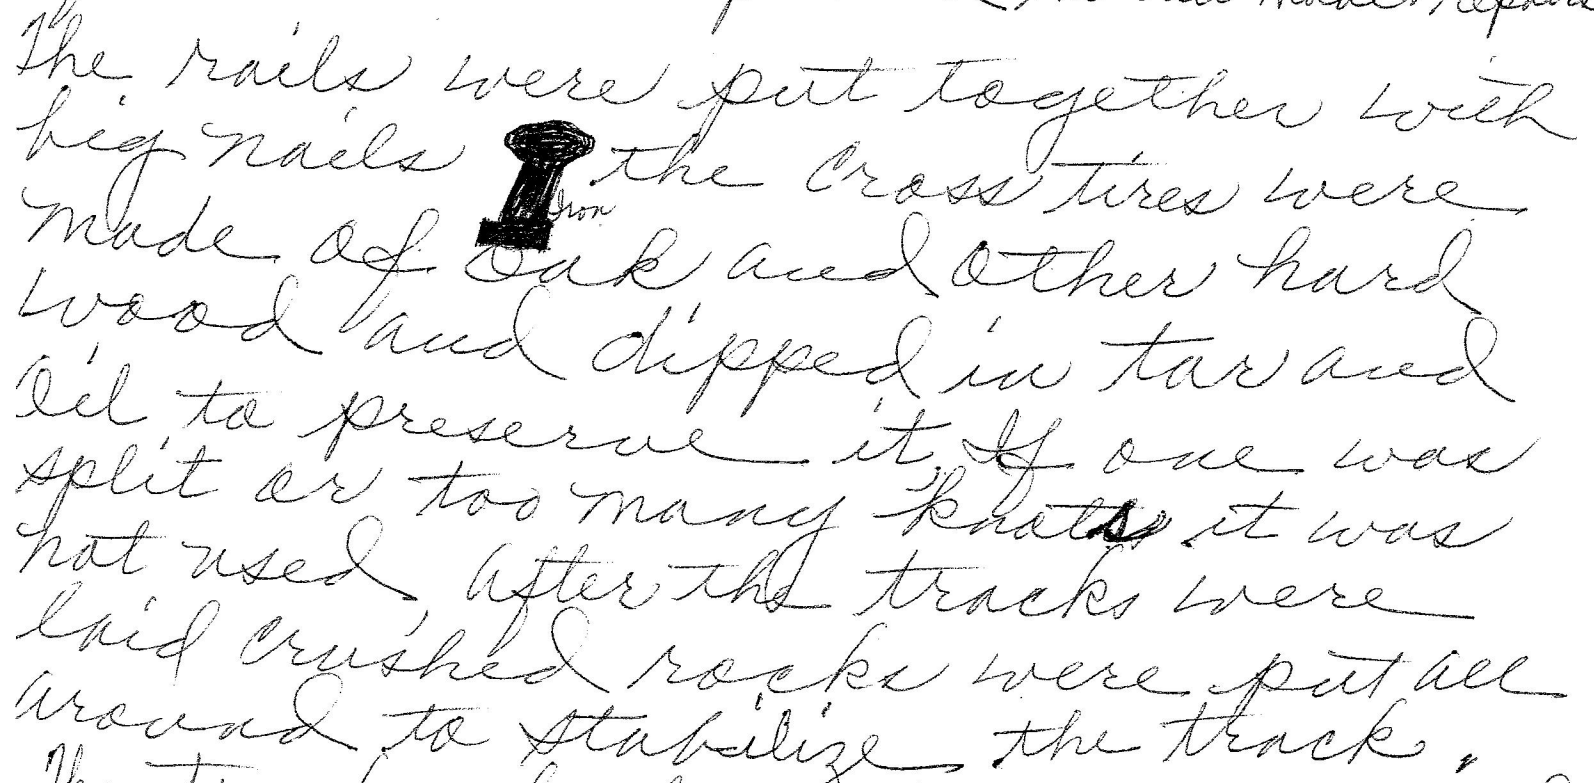 repairs
The rails were put together with
big nails the cross tires were
Iron
made of oak and other hard
wood and dipped in tar and
oil to preserve it. If one was
split or too many knots it was
not used. After the tracks were
laid crushed rocks were put all
around to stabilize the track.
The